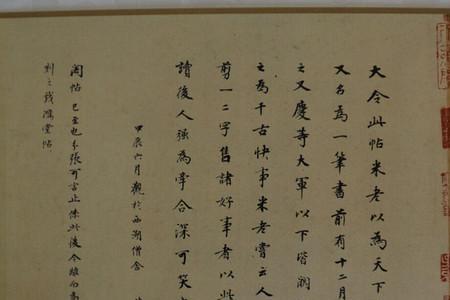 大令此帖米老以為天下
又名為一筆書前有十二月
之又慶等大軍以下皆闕
之為千古快事米老嘗云人
剪一二字售諸好事者以此
讀後人強為牽合深可笑
甲辰六月觀於西湖僧舍
閣帖 已至也分張可言止後今離
刻之戲鴻堂帖